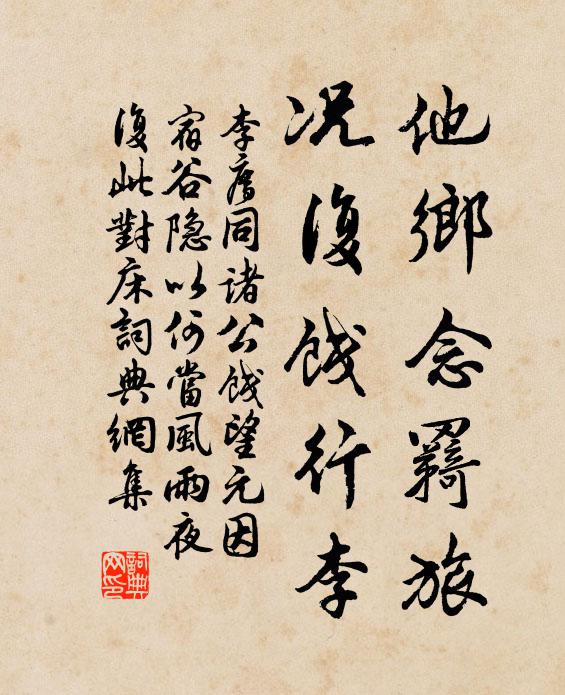 他鄉念羇旅
况復餞行李
李𢋫同諸公餞望元因
宿谷隐以何當風雨夜
復此對床詞典網集
詞典网印